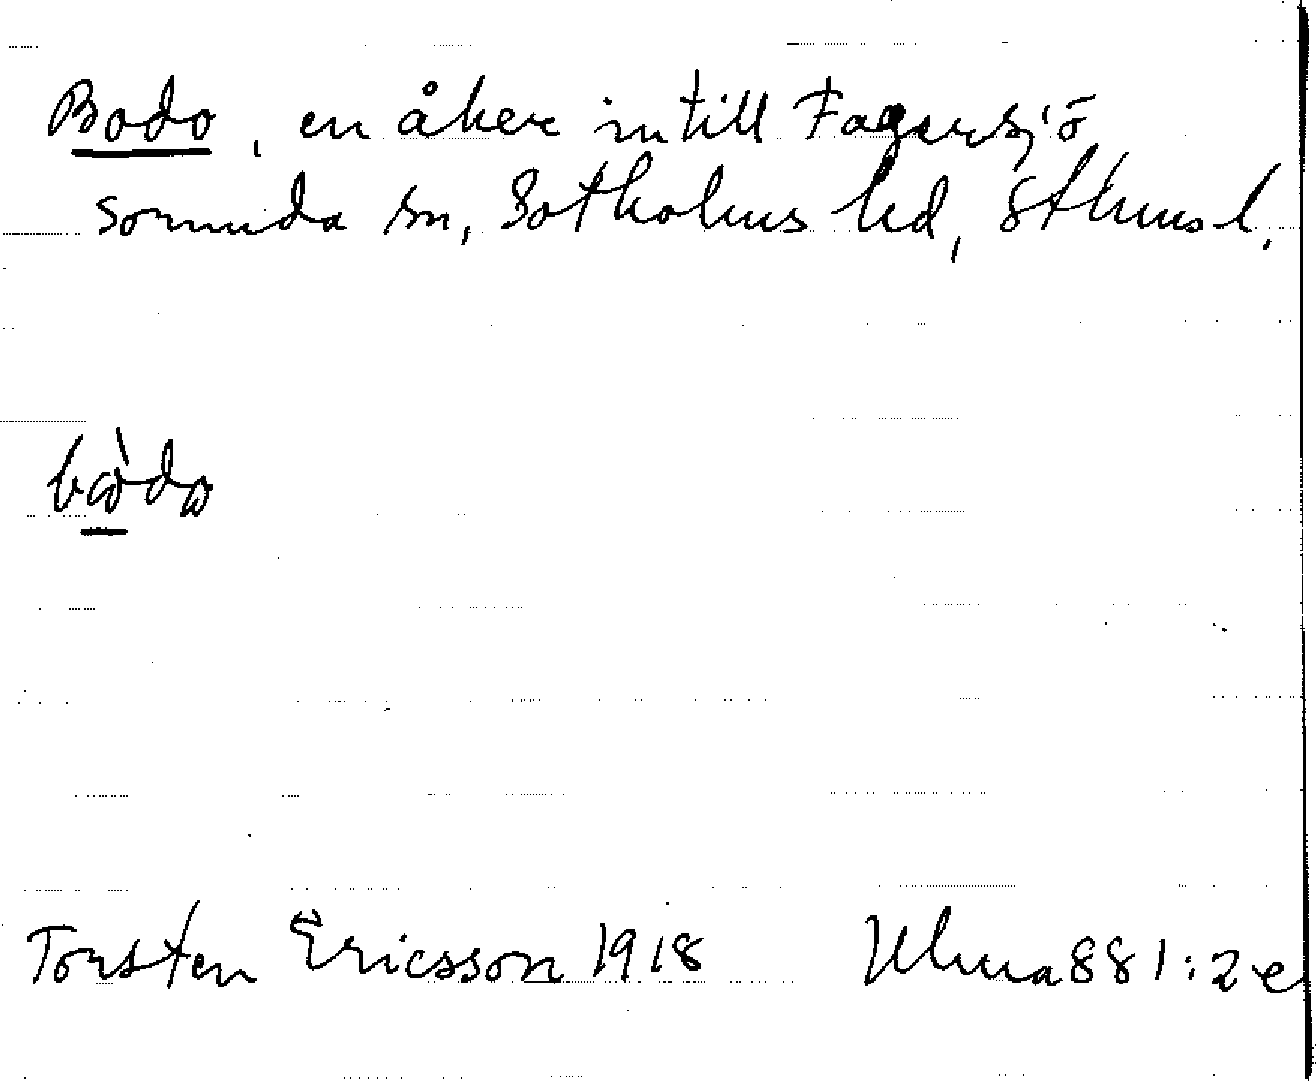 Bodo, en åker intill Fagersjö
Sorunda sn, Sotholms hd, Sthms l.
bὼdω
Torsten Ericsson 1918 Ulma 881:2 e